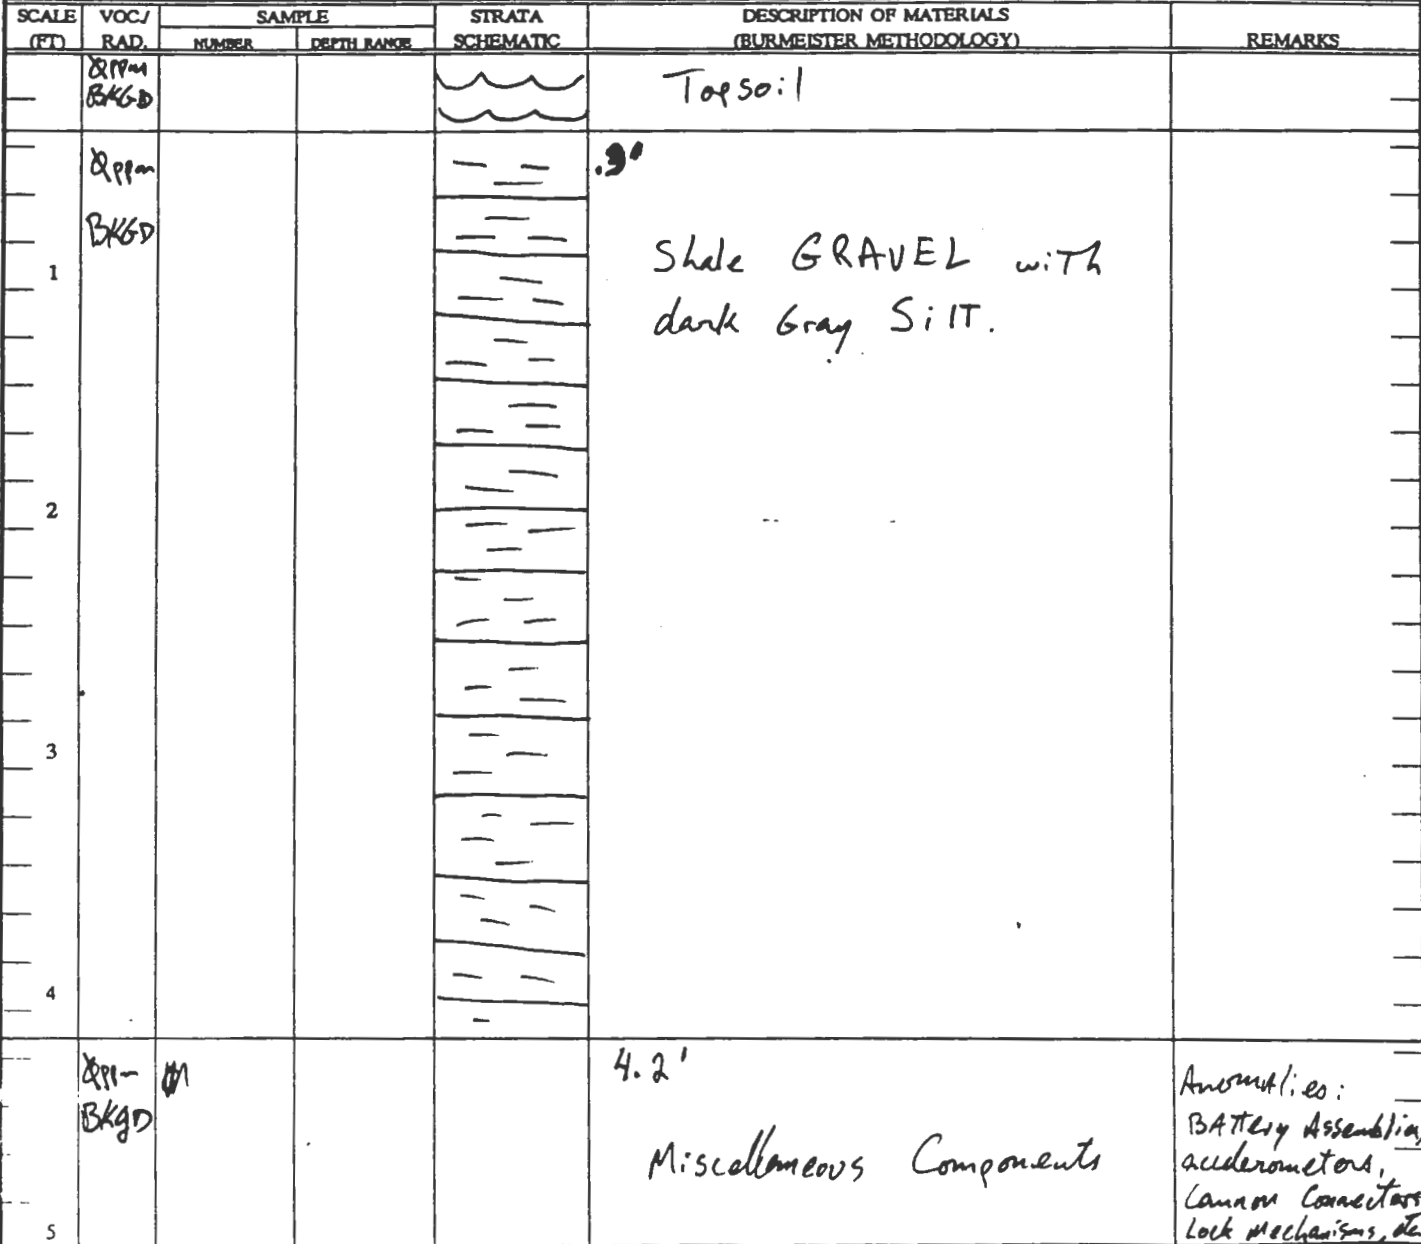 SCALE (FT)
VOC./ RAD.
SAMPLE
NUMBER
DEPTH RANGE
STRATA SCHEMATIC
DESCRIPTION OF MATERIALS
(BURMEISTER METHODOLOGY)
REMARKS
0ppm
BKGD
Topsoil
0ppm
BKGD
Shale GRAVEL with
dark Gray SilT.
1
2
3
4
0ppm
BKgD
4.2'
Miscellaneous Components
Anomalies:
BATTery Assemblies,
accelerometers,
Cannon Connectors
Lock Mechanisms, etc
5